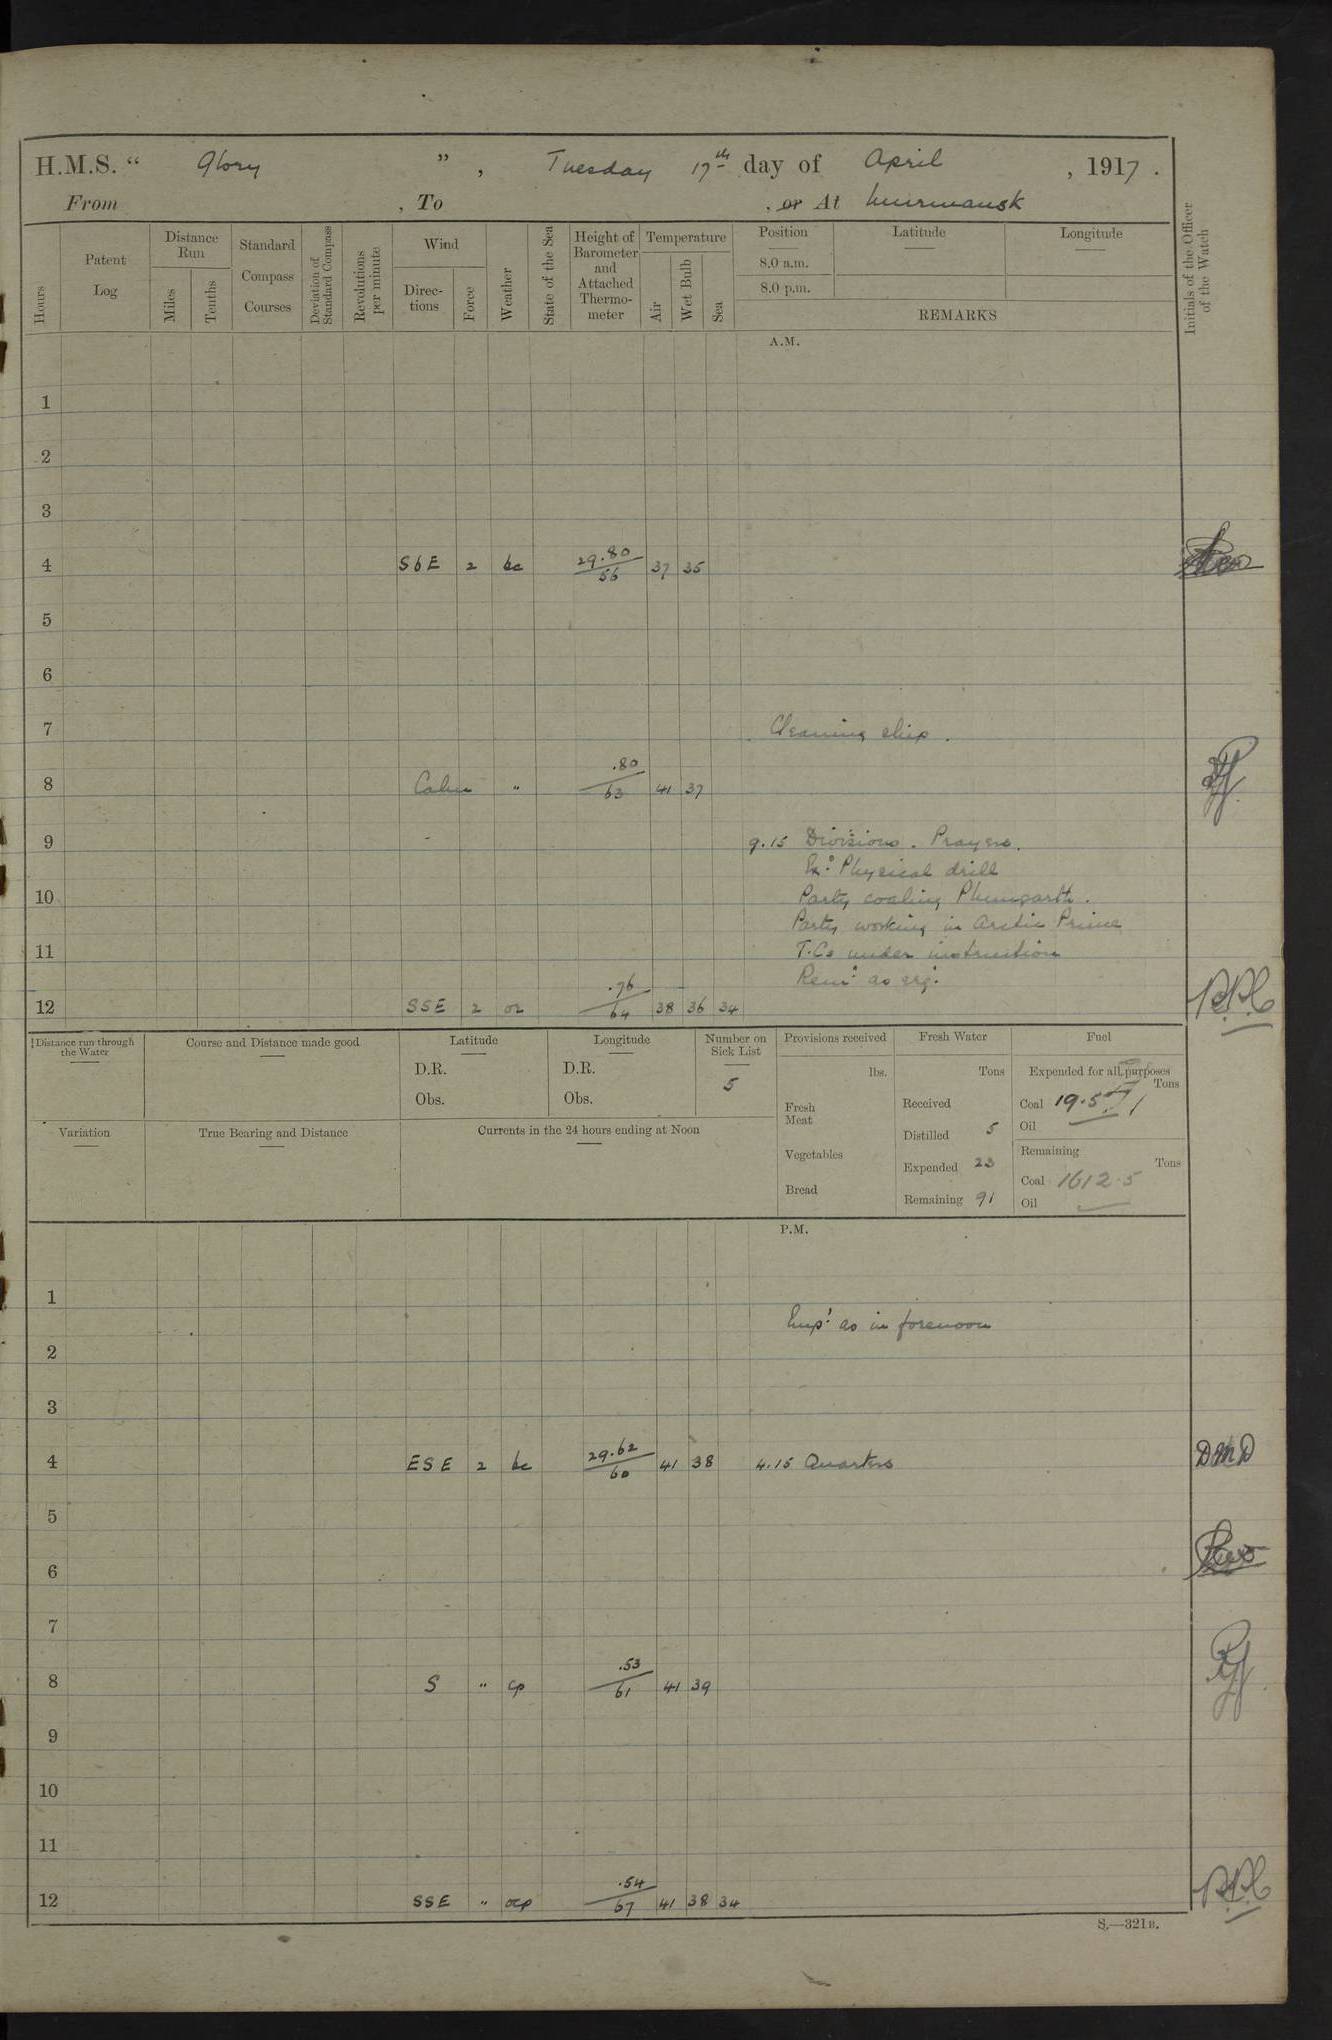 H.M.S. “ Glory ” , Tuesday 17th day of April , 1917 .
From , To , or At Murmansk
Hours
Patent Log
Distance Run
Miles
Tenths
Standard Compass Courses
Deviation of Standard Compass
Revolutions per minute
Wind
Direc- tions
Force
Weather
State of the Sea
Height of Barometer and Attached Thermo- meter
Temperature
Air
Wet Bulb
Sea
Position
8.0 a.m.
8.0 p.m.
Latitude
Longitude
REMARKS
Initials of the Officer of the Watch
A.M.
1
2
3
4 SbE 2 bc 29.80/56 37 35
5
6
7 Cleaning ship.
8 Calm " .80/63 41 37
9 9.15 Divisions. Prayers.
Physical drill
10 Party coaling Plumgarth.
Party working in Arctic Prince
11 T.Cs under instruction
Remr as req.
12 SSE 2 oc .76/64 38 36 34 R.P.C
Distance run through the Water
Course and Distance made good
Latitude
D.R.
Obs.
Longitude
D.R.
Obs.
Number on Sick List
5
Variation
True Bearing and Distance
Currents in the 24 hours ending at Noon
Provisions received
lbs.
Fresh Meat
Vegetables
Bread
Fresh Water
Tons
Received
Distilled 5
Expended 23
Remaining 91
Fuel
Expended for all purposes
Tons
Coal 19.5
Oil
Remaining
Tons
Coal 1612.5
Oil
P.M.
1
Emp: as in forenoon
2
3
4 ESE 2 bc 29.62/60 41 38 4.15 Quarters DMD
5
6
7
8 S " cp .53/61 41 39
9
10
11
12 SSE " ocp .54/67 41 38 34 R.P.C
S.—321B.